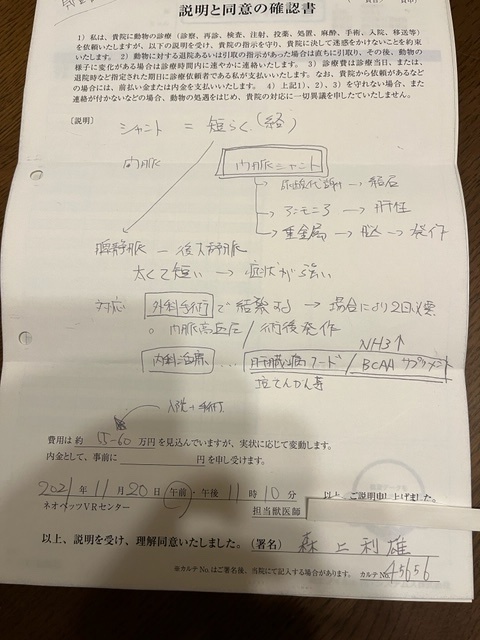 説明と同意の確認書
1）私は、貴院に動物の診療（診察、再診、検査、注射、投薬、処置、麻酔、手術、入院、移送等）
を依頼いたしますが、以下の説明を受け、貴院の指示を守り、貴院に決して迷惑をかけないことを約
束いたします。2）動物に対する退院あるいは引取の指示があった場合は直ちに引取り、その後、動物の
様子に変化がある場合は診療時間内に速やかに連絡いたします。3）診療費は診療当日、または、
退院時など指定された期日に診療依頼者である私が支払いいたします。なお、貴院から依頼があるなど
の場合には、前払い金または内金を支払いいたします。4）上記1）、2）、3）を守れない場合、また
連絡が付かないなどの場合、動物の処遇をはじめ、貴院の対応に一切異議を申したていたしません。
［説明］
シャント = 短らく（絡）
門脈
門脈シャント
尿酸代謝 → 結石
アンモニア → 肝性
重金属 → 脳 → 発作
脾静脈 − 後大静脈
太くて短い → 症状が強い
対応
外科手術 で結紮する → 場合により2回必要
門脈高血圧 / 術後発作
NH3↑
内科治療 … 肝臓病フード / BCAA サプリメント
抗てんかん薬
入院+手術
費用は約 15-60 万円を見込んでいますが、実状に応じて変動します。
内金として、事前に 円を申し受けます。
2021 年 11 月 20 日 午前・午後 11 時 10 分 以上、ご説明申し上げました。
ネオベッツVRセンター 担当獣医師
以上、説明を受け、理解同意いたしました。（署名） 森上利雄
※カルテNo.はご署名後、当院にて記入する場合があります。 カルテNo. 45656